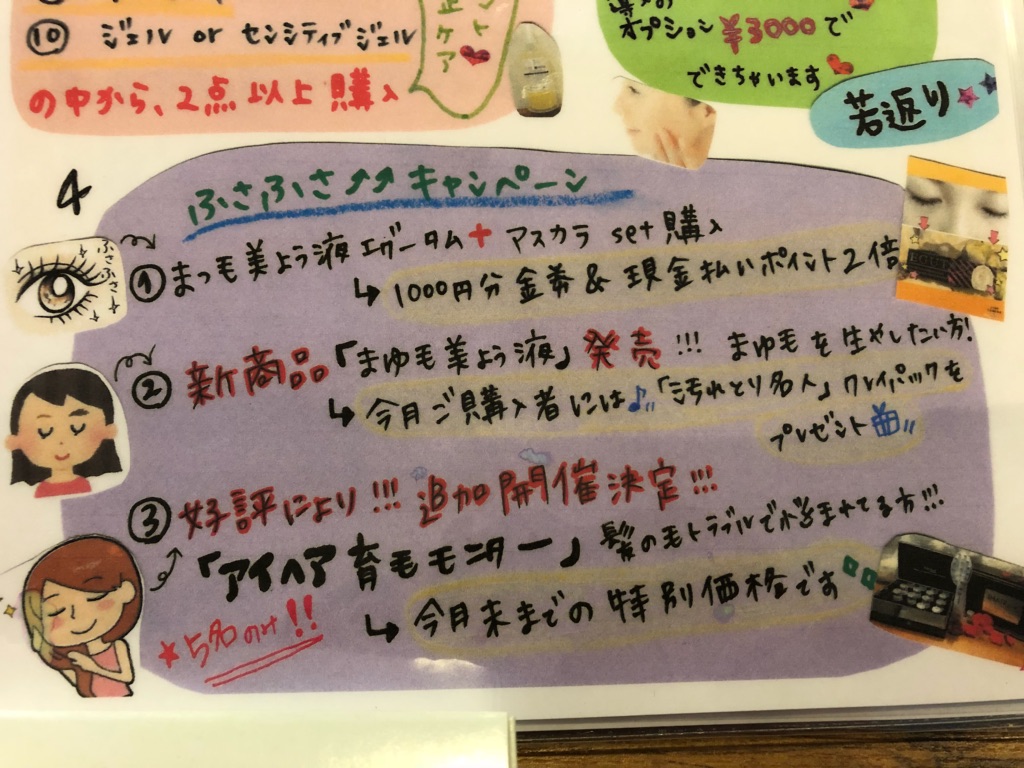 ⑩ ジェル or センシティブジェル
の中から、2点以上購入
ケア
オプション ¥3000で
できちゃいます
若返り
4
ふさふさ↑↑キャンペーン
ふさふさ
①まつ毛美よう液エグータム+マスカラ set購入
↳ 1000円分金券&現金払いポイント2倍
②新商品「まゆ毛美よう液」発売!!! まゆ毛を生やしたい方!
↳ 今月ご購入者には♪「汚れとり名人」クレイパックを
プレゼント
③好評により!!! 追加開催決定!!!
「アイヘア育毛モニター」髪の毛トラブルで悩ませてる方!!!
★5名のみ!!
↳ 今月末までの特別価格です